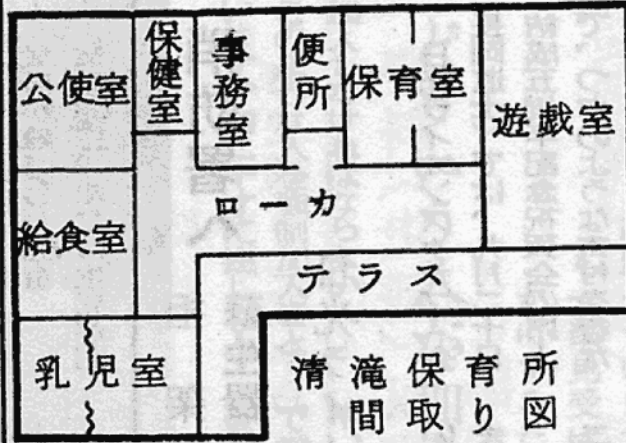 公使室
保健室
事務室
便所
保育室
遊戯室
給食室
ローカ
テラス
乳児室
清滝保育所
間取り図